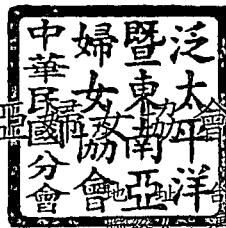 泛太平洋
暨東南亞
婦女協會
中華民國分會